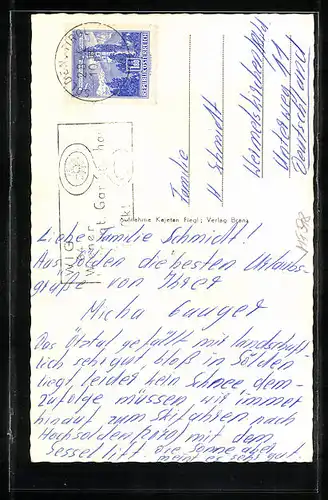 REPUBLIK ÖSTERREICH
Wiener
Aufnahme Kajetan Riegl; Verlag
Familie
H. Schmidt
Unterweg 11
Deutschland
Liebe Familie Schmidt!
Aus Sölden die besten Urlaubs-
grüße von Ihrer
Micha Gauger
Das Ötztal gefällt mit landschaft-
lich sehr gut, bloß in Sölden
liegt leider kein Schnee dem-
zufolge müssen wir immer
hinauf zum Skifahren nach
Hochsölden (2070) mit dem
Sessellift. Die Sonne aber
meint es sehr gut.